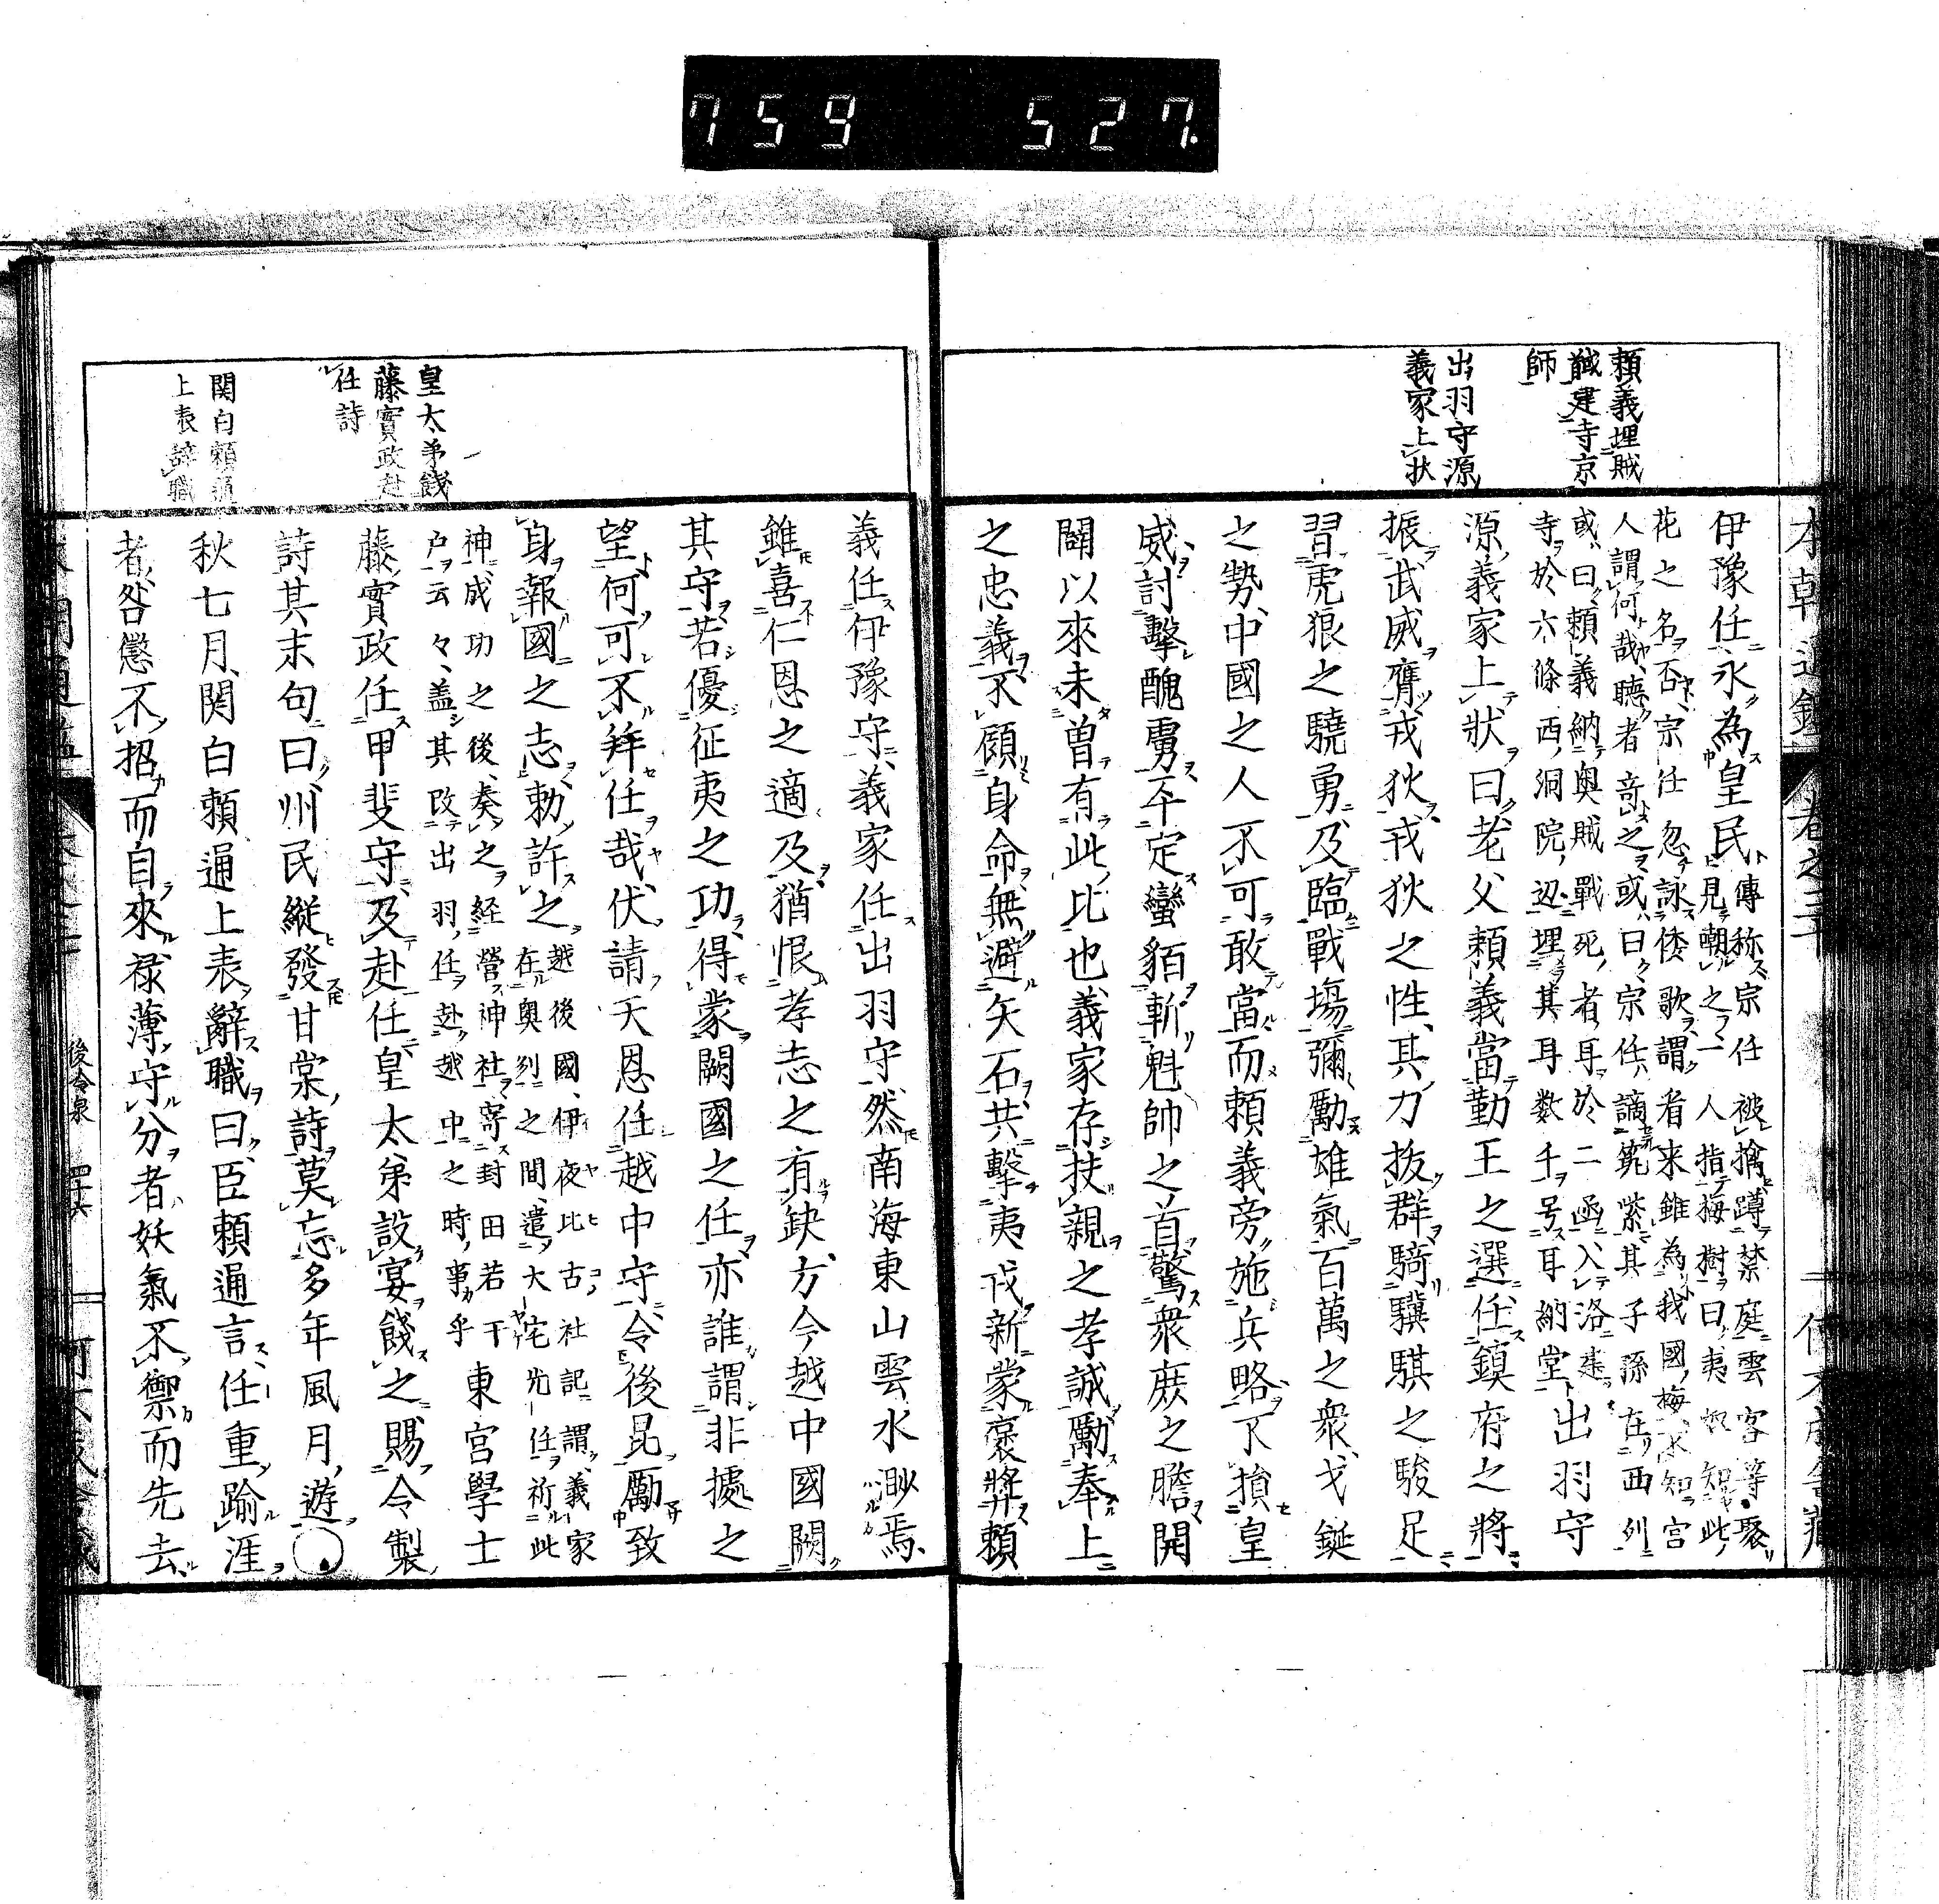 759 527.
頼義埋賊
馘建寺京
師
出羽守源
義家上状
伊豫任永為皇民
傳称宗任被擒蹲禁庭雲客等聚
見嘲之一人指梅樹曰夷奴知此
花之名否宗任忽詠倭歌謂者来雖為我國梅不知宮
人謂何哉聴者竒之或曰宗任謫筑紫其子孫在西列
或曰頼義納奥賊戰死者耳於二函入洛建
寺於六條西洞院辺埋其耳数千号耳納堂
出羽守
源義家上狀曰老父頼義當勤王之選任鎮府之將
振武威膺戎狄戎狄之性其力抜群騎驥騏之駿足
習虎狼之驍勇及臨戰塲彌勵雄氣百萬之衆戈鋋
之勢中國之人不可敢當而頼義旁施兵略不損皇
威討擊醜虜平定蠻貊斬魁帥之首驚衆庶之膽開
闢以來未曽有此比也義家存扶親之孝誠勵奉上
之忠義不顧身命無避矢石共擊夷戎新蒙襃奬頼
義任伊豫守義家任出羽守然南海東山雲水渺焉
雖喜仁恩之適及猶恨孝志之有缺方今越中國闕
其守若優征夷之功得蒙闕國之任亦誰謂非據之
望何可不拜任哉伏請天恩任越中守令後昆勵致
身報國之志勅許之
越後國伊夜比古社記謂義家
在奥列之間遣大宅光任祈此
神成功之後奏之経營神社寄封田若干
户云々盖其改出羽任赴越中之時事乎
東宮學士
藤實政任甲斐守及赴任皇太弟設宴餞之賜令製
詩其末句曰州民縱發甘棠詩莫忘多年風月遊
秋七月関白頼通上表辭職曰臣頼通言任重踰涯
者咎懲不招而自來禄薄守分者妖氣不禦而先去
皇太弟餞
藤實政赴
任詩
関白頼通
上表辞職
後令泉
四十六